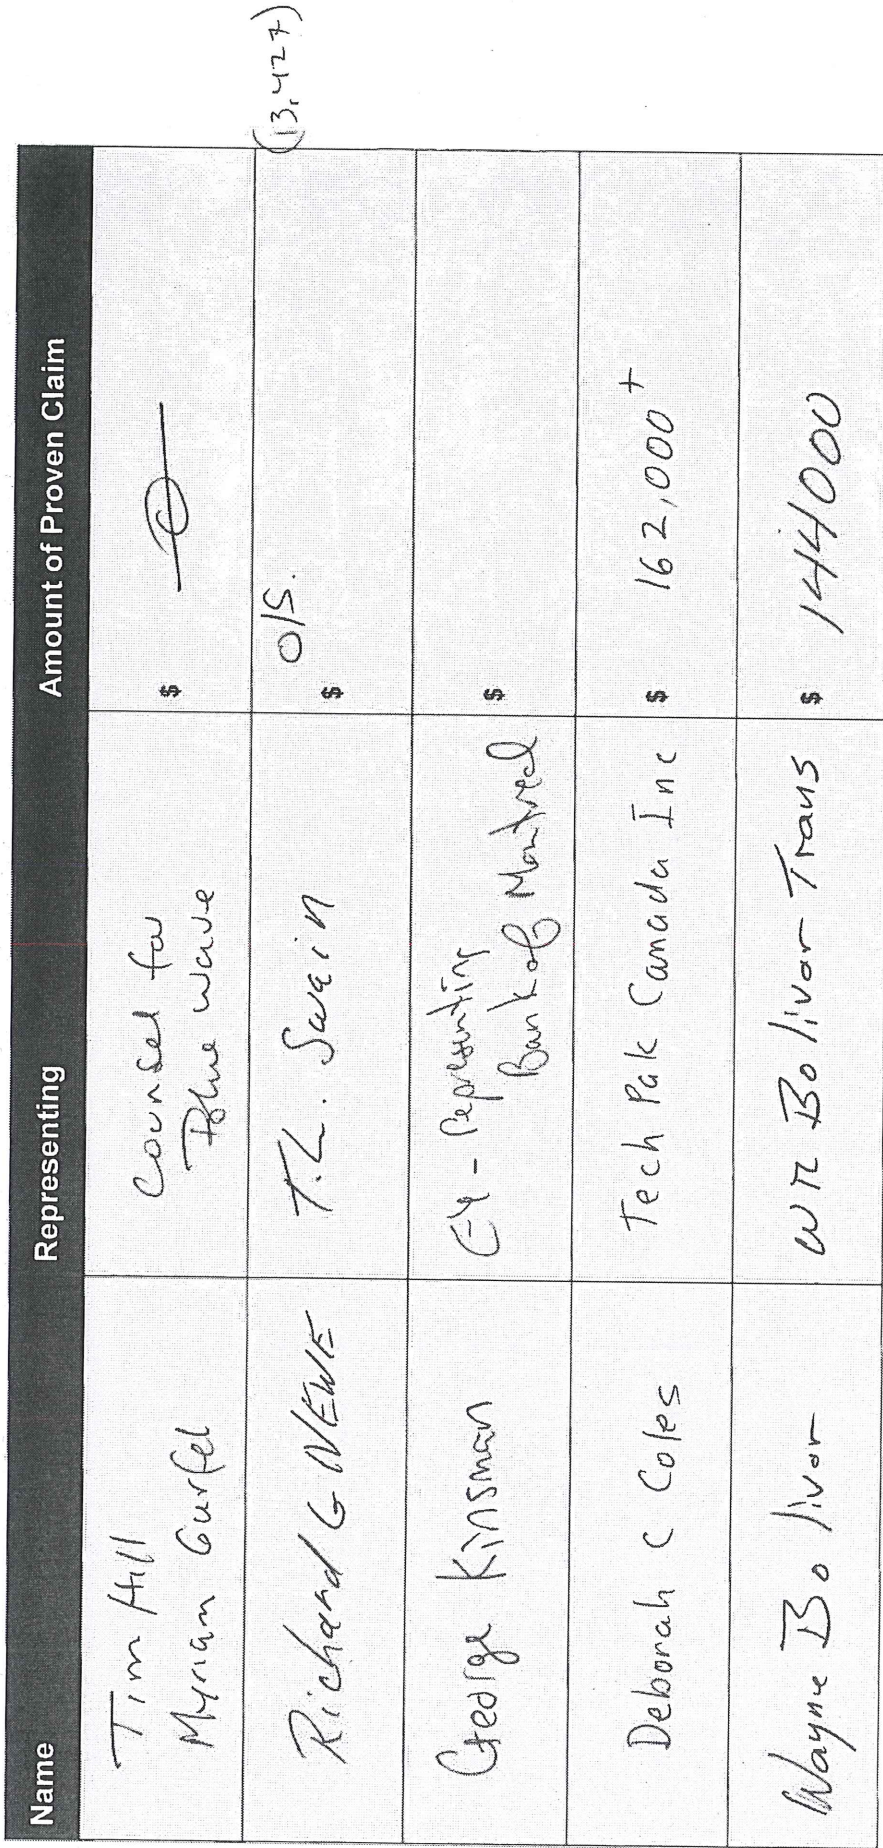 Name Representing Amount of Proven Claim
Tim Hill
Myriam Gurfel
Counsel for
Blue Wave
$
Richard G NEWE
T.L. Swain
$ O/S.
(13,427)
George Kinsman
EY - Representing
Bank of Montreal
$
Deborah C Coles
Tech Pak Canada Inc
$ 162,000+
Wayne Bolivar
WR Bolivar Trans
$ 144000